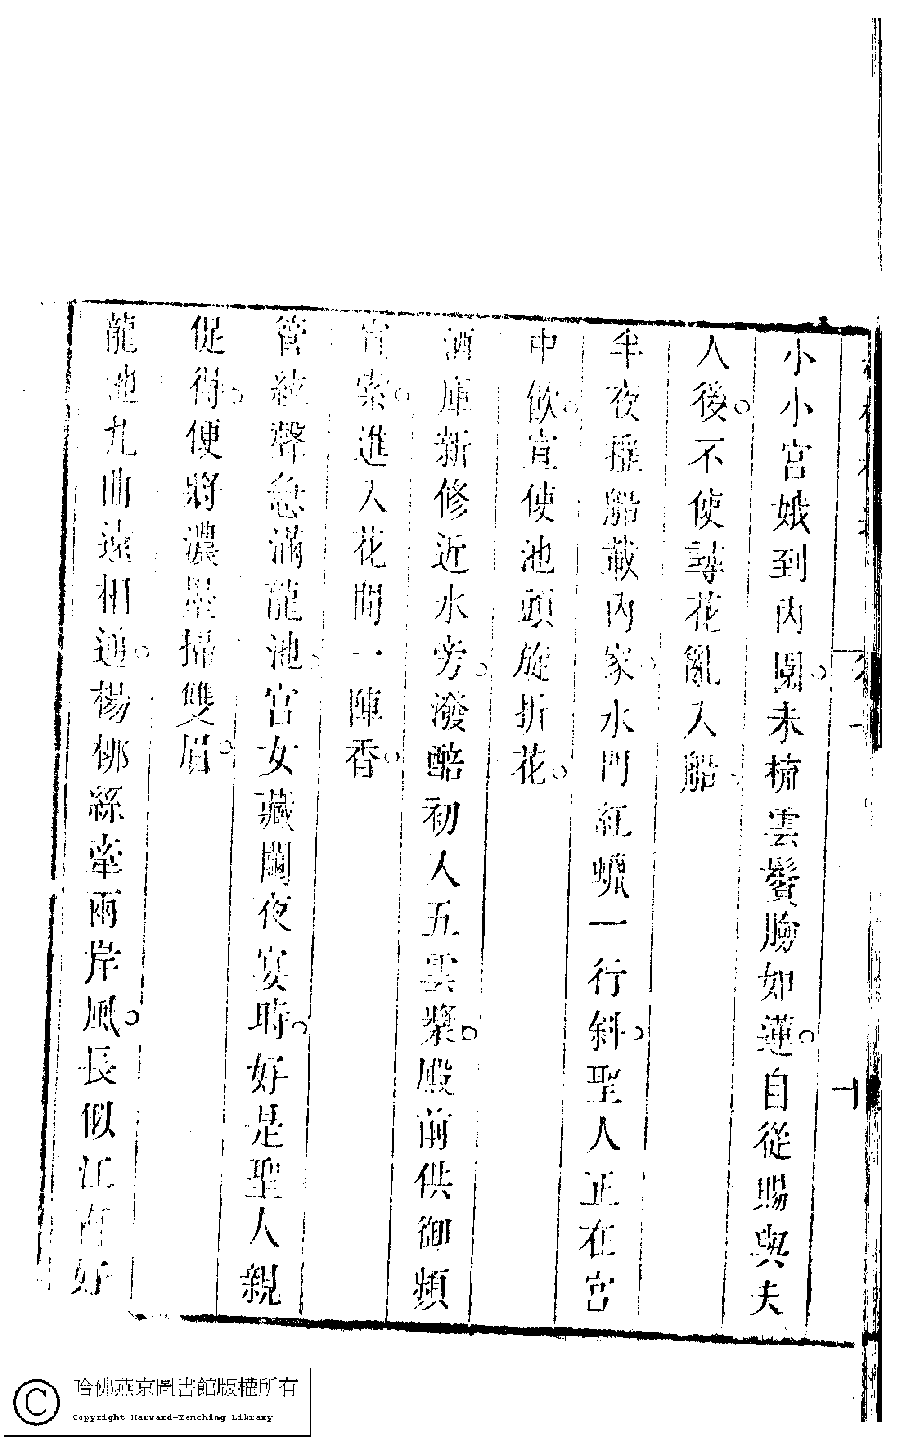 小小宮娥到內園未梳雲鬢臉如蓮自從賜與夫
人後不使尋花亂入船
半夜搖船載內家水門紅蠟一行斜聖人正在宮
中飲宣使池頭旋折花
酒庫新修近水旁潑醅初入五雲漿殿前供御頻
宵索進入花間一陣香
管絃聲急滿龍池宮女藏鬮夜宴時好是聖人親
促得便將濃墨掃雙眉
龍池九曲遠相通楊栁絲牽兩岸風長似江南好
哈佛燕京圖書館版權所有
Copyright Harvard-Yenching Library